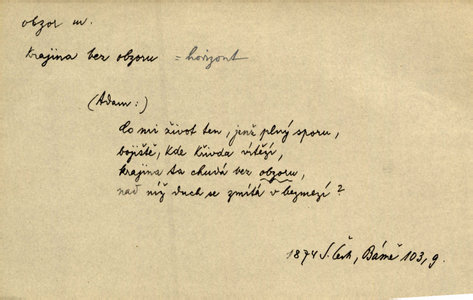 obzor m.
krajina bez obzoru = horizont
(Adam:)
Co mi život ten, jenž plný sporu,
bojiště, kde křivda vítězí,
krajina ta chudá bez obzoru,
nad níž duch se zmítá v bezmezí?
1874 S. Čech, Básně 103, 9.